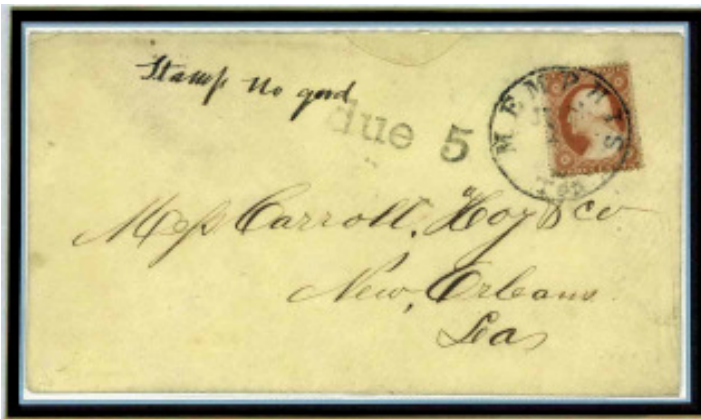 Stamp no good
due 5
MEMPHIS
Ten
Mess Carroll, Hoy & co
New, Orleans
Lea